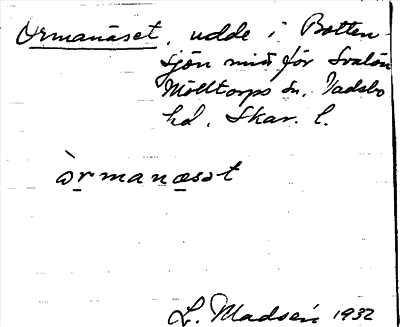 Ormanäset, udde i Botten-
sjön mitt för Svalön
Mölltorps sn, Vadsbo
hd. Skar. l.
òrmanæsət
L. Madsén 1932